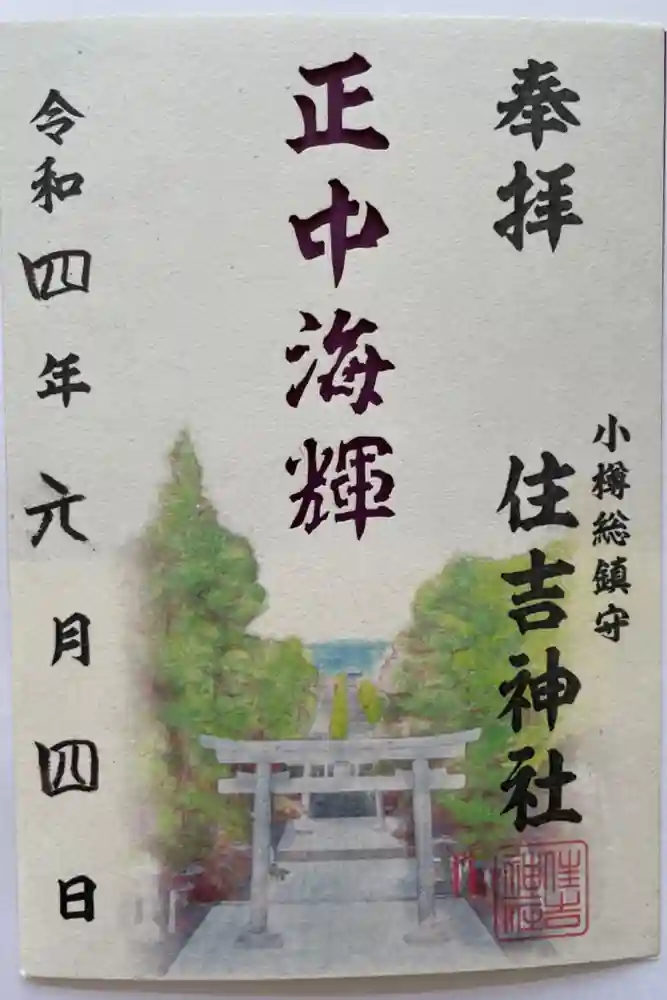 奉拝
小樽総鎮守
住吉神社
住吉神社
正中海輝
令和四年六月四日